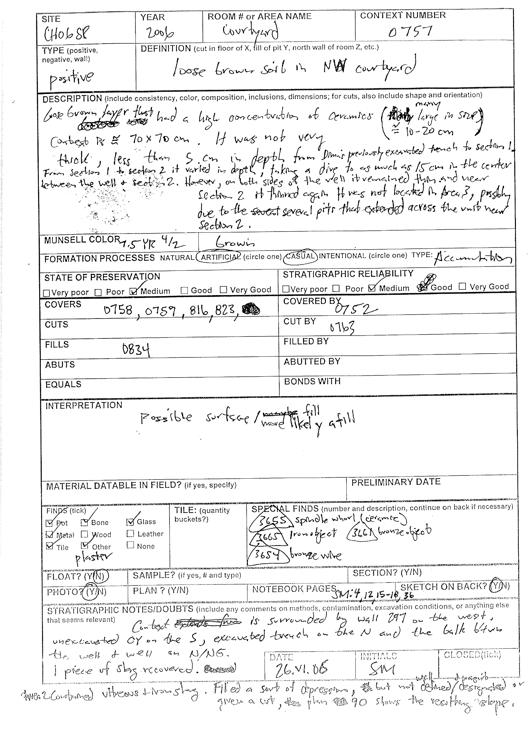 SITE YEAR ROOM # or AREA NAME CONTEXT NUMBER
CHO6SP 2006 Courtyard 0757
TYPE (positive, negative, wall) DEFINITION (cut in floor of X, fill of pit Y, north wall of room Z, etc.)
positive loose brown soil in NW courtyard
DESCRIPTION (include consistency, color, composition, inclusions, dimensions; for cuts, also include shape and orientation)
loose brown layer that had a high concentration of ceramics (many large in size
≅ 10-20 cm)
Context is ≅ 70 x 70 cm. It was not very
thick, less than 5 cm in depth from Dimi's previously excavated trench to section 1.
From section 1 to section 2 it varied in depth, taking a dive to as much as 15 cm in the center
between the well & section 2. However, on both sides of the well it remained thin and near
section 2 it thinned again. It was not located in Area 3, possibly
due to the several pits that extended across the unit near
section 2.
MUNSELL COLOR 7.5 YR 4/2 brown
FORMATION PROCESSES NATURAL ARTIFICIAL (circle one) CASUAL INTENTIONAL (circle one) TYPE: Accumulation
STATE OF PRESERVATION STRATIGRAPHIC RELIABILITY
Very poor Poor Medium Good Very Good Very poor Poor Medium Good Very Good
COVERS 0758, 0759, 816, 823, COVERED BY 0752
CUTS CUT BY 0763
FILLS 0834 FILLED BY
ABUTS ABUTTED BY
EQUALS BONDS WITH
INTERPRETATION
Possible surface / fill
more likely a fill
MATERIAL DATABLE IN FIELD? (if yes, specify) PRELIMINARY DATE
FINDS (tick) TILE: (quantity buckets?) SPECIAL FINDS (number and description, continue on back if necessary)
Pot Bone Glass 3655 spindle whorl (ceramic)
Metal Wood Leather 3665 Iron object 3661 bronze object
Tile Other None 3654 bronze wire
plaster
FLOAT? (Y/N) SAMPLE? (if yes, # and type) SECTION? (Y/N)
PHOTO? (Y/N) PLAN? (Y/N) NOTEBOOK PAGES SM: 4, 12, 15-18, 36 SKETCH ON BACK? (Y/N)
STRATIGRAPHIC NOTES/DOUBTS (include any comments on methods, contamination, excavation conditions, or anything else that seems relevant)
Context is surrounded by wall 297 on the west,
unexcavated on the S, excavated trench on the N and the balk btwn
the well & well on N/NE.
1 piece of slag recovered.
DATE 26.VI.06 INITIALS SM CLOSED (tick)
vitreous + iron slag. Filled a sort of depression, but not well defined/designated or
given a cut, plan 90 shows the resulting slope.